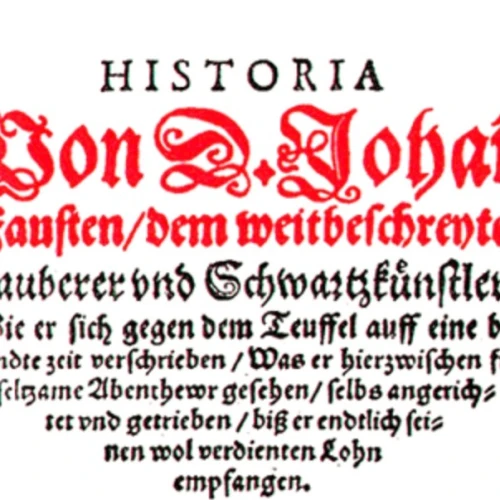 HISTORIA
Von D. Johan
Fausten/dem weitbeschreyte
auberer vnd Schwartzkuͤnstler
Wie er sich gegen dem Teuffel auff eine b
ndte zeit verschrieben / Was er hierzwischen f
seltzame Abenthewr gesehen / selbs angerich⸗
tet vnd getrieben / biß er endtlich sei⸗
nen wol verdienten Lohn
empfangen.